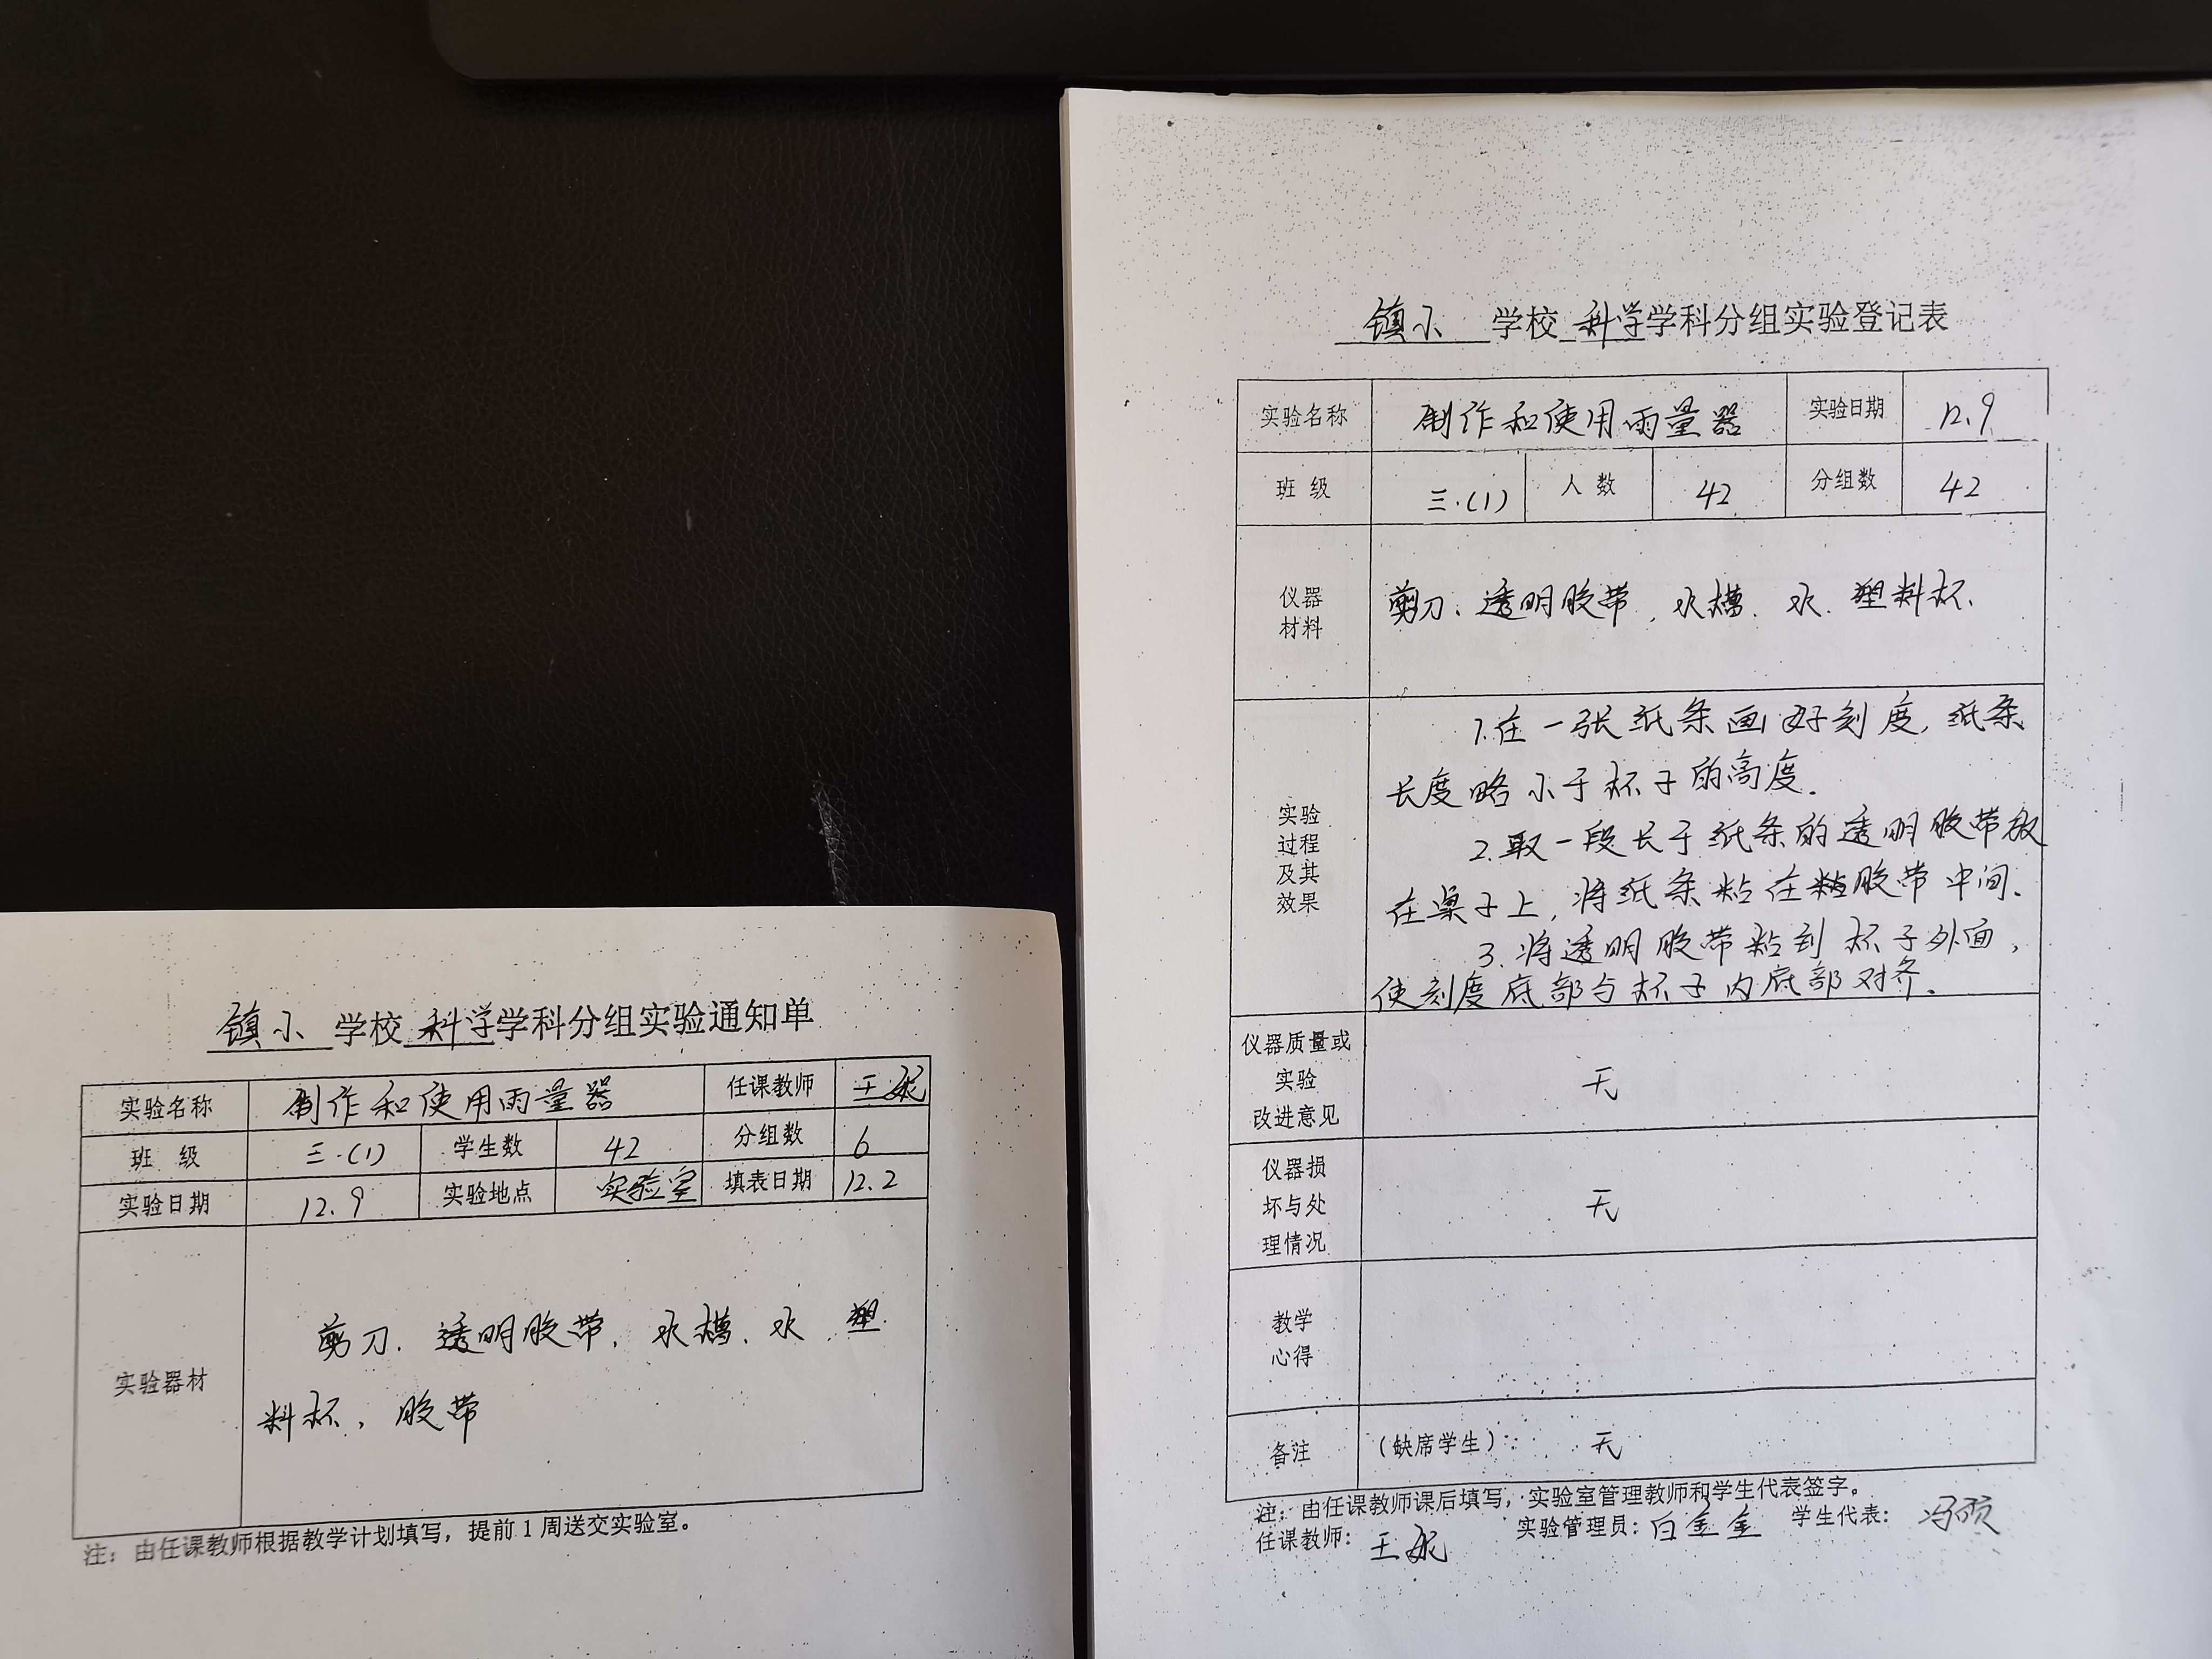 镇小 学校 科学学科分组实验通知单
实验名称 制作和使用雨量器 任课教师 王
班 级 三.(1) 学生数 42 分组数 6
实验日期 12.9 实验地点 实验室 填表日期 12.2
实验器材
剪刀、透明胶带、水槽、水 塑
料杯、胶带
注：由任课教师根据教学计划填写，提前1周送交实验室。
镇小 学校 科学学科分组实验登记表
实验名称 制作和使用雨量器 实验日期 12.9
班 级 三.(1) 人 数 42 分组数 42
仪器
材料
剪刀、透明胶带、水槽、水、塑料杯、
实验
过程
及其
效果
1.在一张纸条画好刻度，纸条
长度略小于杯子的高度.
2.取一段长于纸条的透明胶带放
在桌子上，将纸条粘在粘胶带中间.
3.将透明胶带粘到杯子外面，
使刻度底部与杯子内底部对齐.
仪器质量或
实验
改进意见
无
仪器损
坏与处
理情况
无
教学
心得
备注 （缺席学生）： 无
注：由任课教师课后填写，实验室管理教师和学生代表签字。
任课教师： 王 实验管理员：白金金 学生代表： 冯